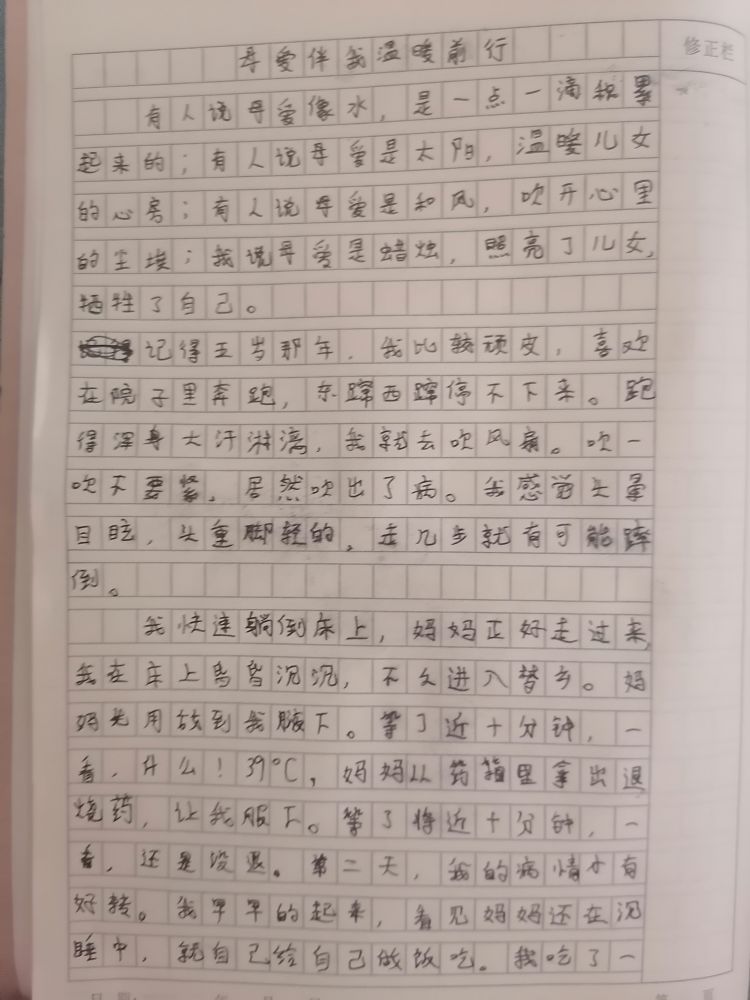 母爱伴我温暖前行
修正栏
有人说母爱像水，是一点一滴积累
起来的；有人说母爱是太阳，温暖儿女
的心房；有人说母爱是和风，吹开心里
的尘埃；我说母爱是蜡烛，照亮了儿女，
牺牲了自己。
记得五岁那年，我比较顽皮，喜欢
在院子里奔跑，东蹿西蹿停不下来。跑
得浑身大汗淋漓，我就去吹风扇。吹一
吹不要紧，居然吹出了病。我感觉头晕
目眩，头重脚轻的，走几步就有可能摔
倒。
我快速躺倒床上，妈妈正好走过来，
我在床上昏昏沉沉，不久进入梦乡。妈
妈先用放到我腋下。等了近十分钟，一
看，什么！39℃，妈妈从药箱里拿出退
烧药，让我服下。等了将近十分钟，一
看，还是没退。第二天，我的病情才有
好转。我早早的起来，看见妈妈还在沉
睡中，就自己给自己做饭吃。我吃了一